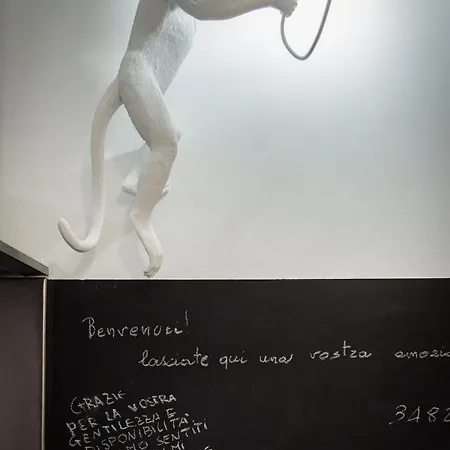 Benvenuti!
lasciate qui una vostra emozio
3482
GRAZIE
PER LA VOSTRA
GENTILEZZA E
DISPONIBILITÀ
SENTITI